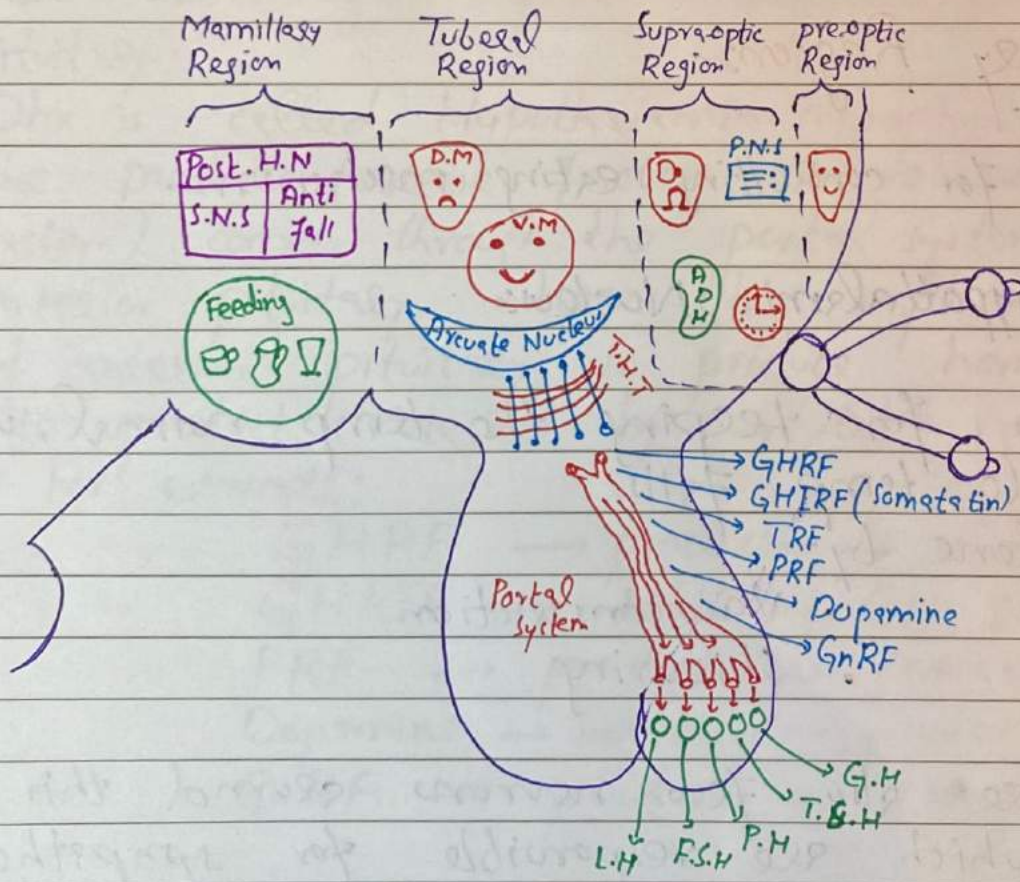 Mamillary
Region
Tuberal
Region
Supraoptic
Region
pre.optic
Region
Post. H.N
S.N.S
Anti
fall
D.M
V.M
P.N.S
Feeding
A
D
H
Arcuate Nucleus
T.H.T
GHRF
GHIRF (Somatatin)
TRF
PRF
Dopamine
GnRF
Portal
system
G.H
T.S.H
P.H
F.S.H
L.H